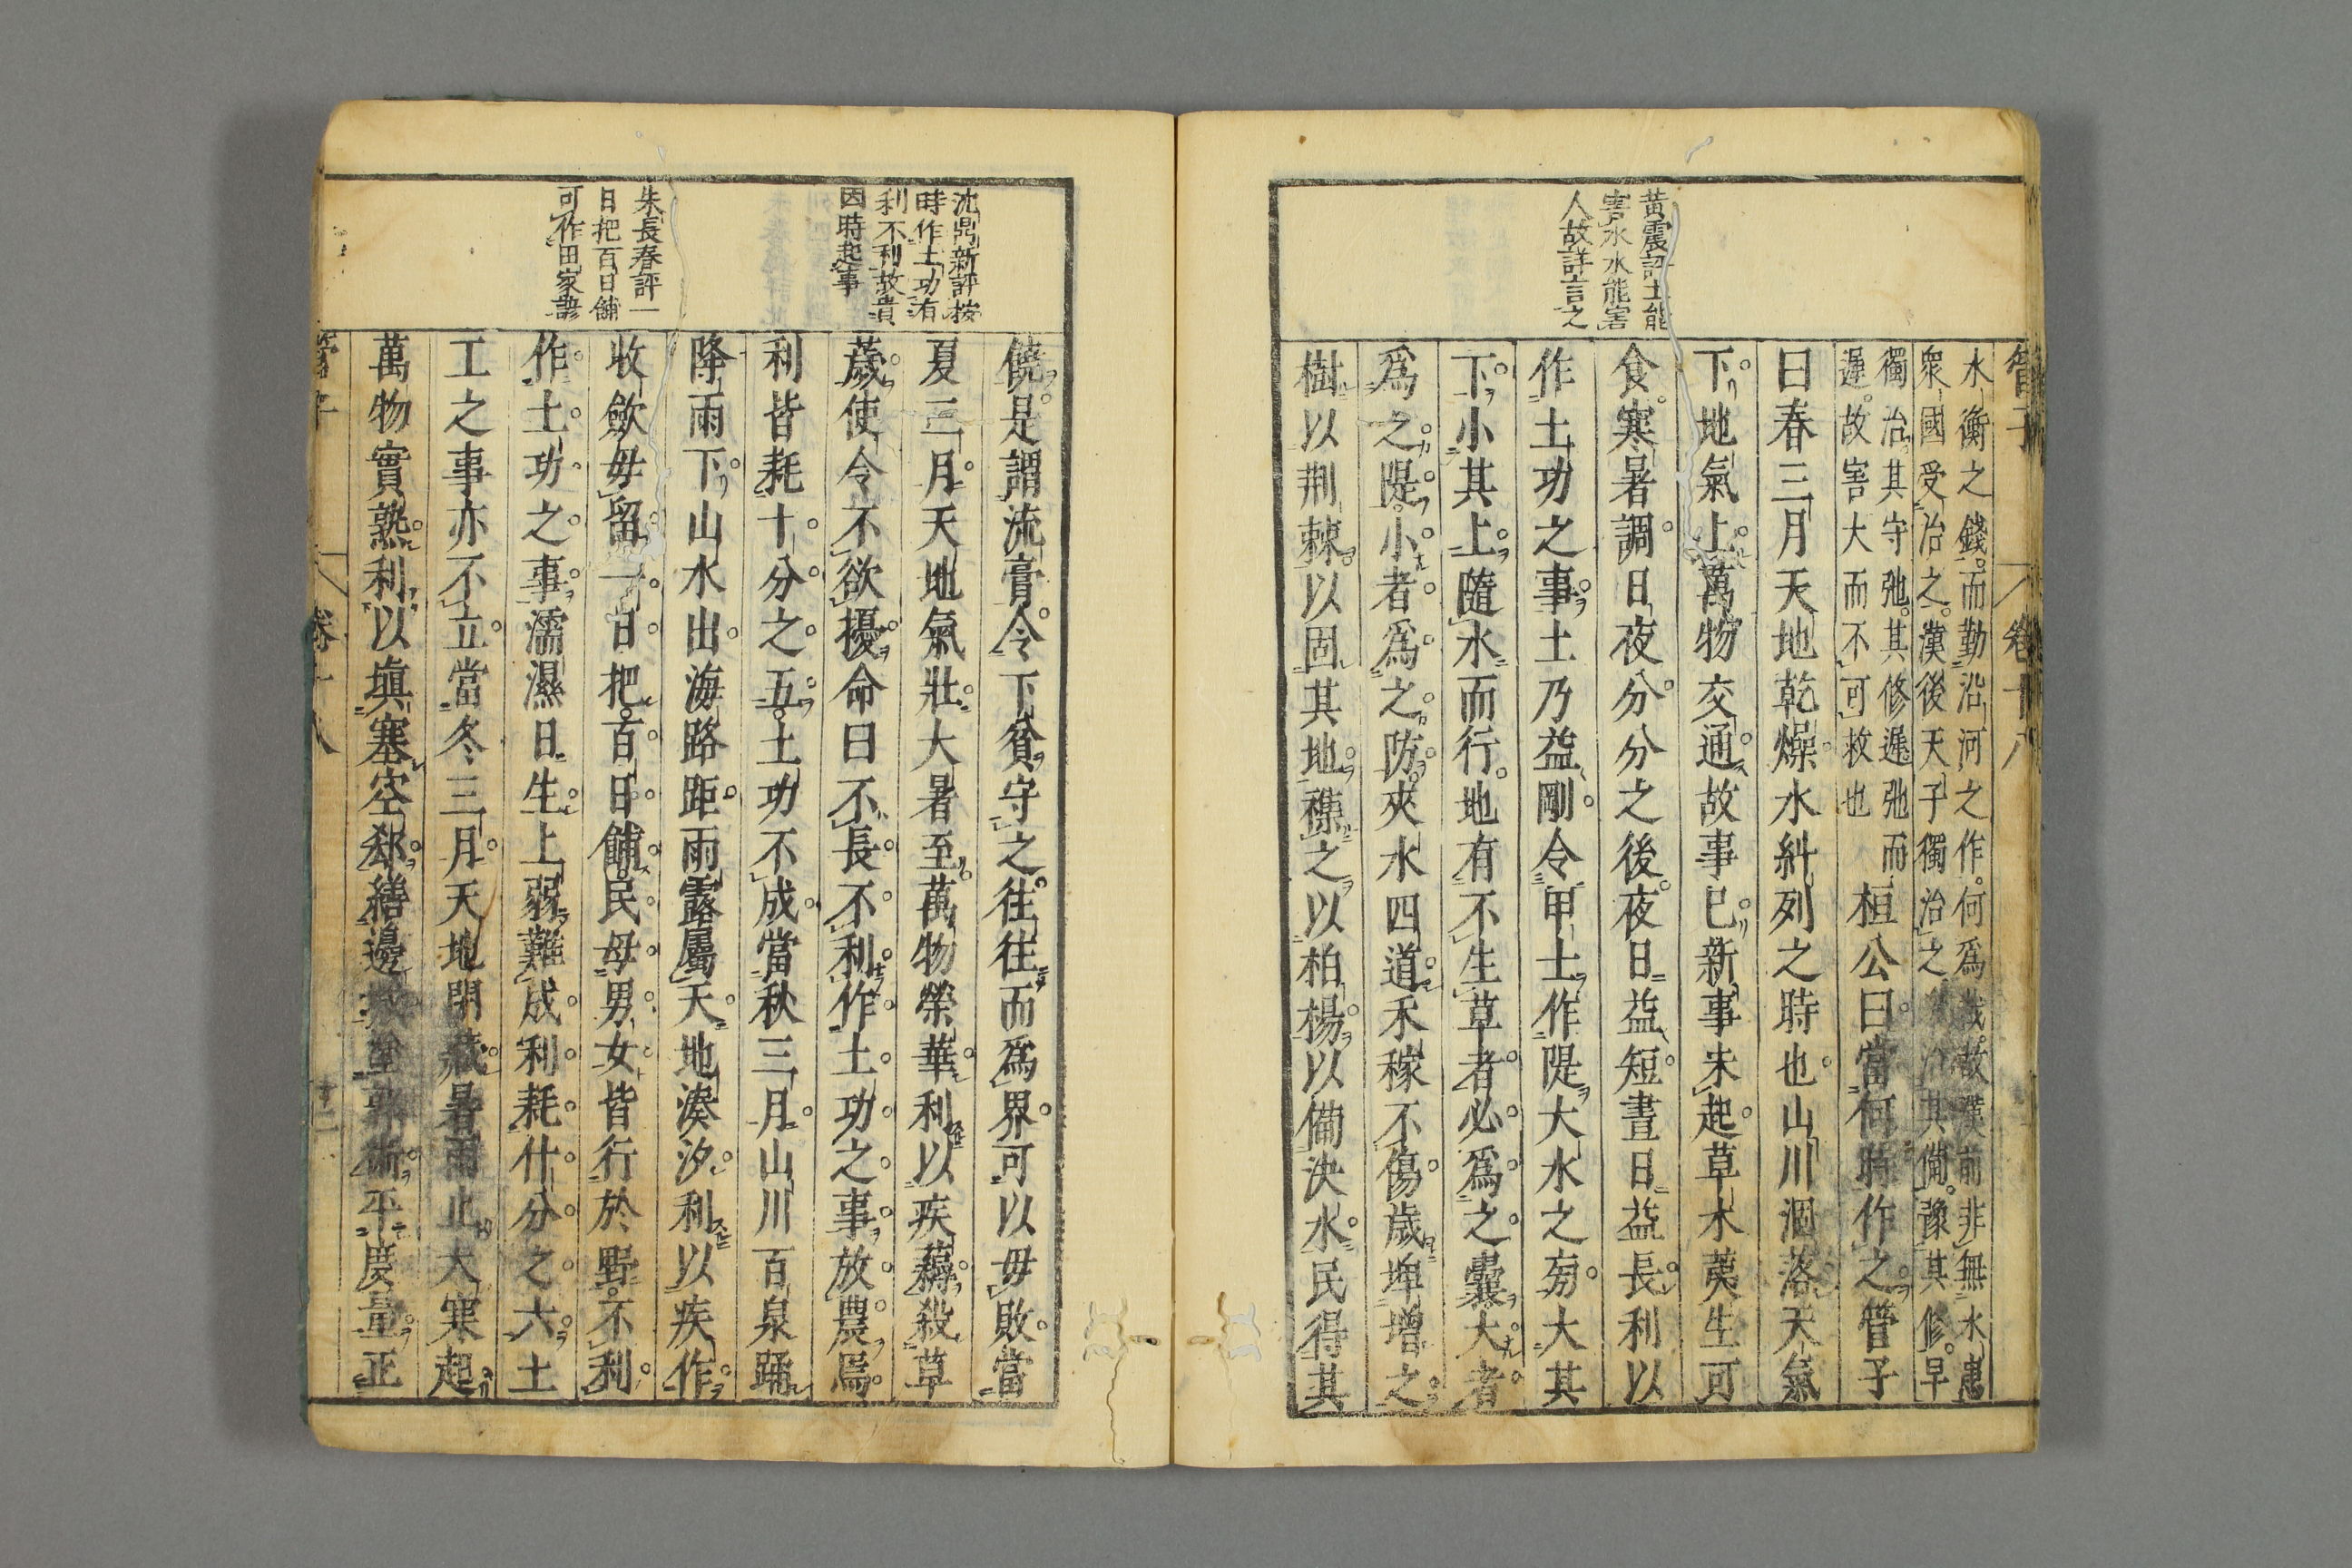 管子
卷十八
黄震評土能
害水水能害
人故詳言之
水衡之錢而勤沿河之作何為哉故漢前非無水患
衆國受治之漢後天子獨治之
其備豫其修早
獨治其守弛其修遲弛而
遲故害大而不可救也
桓公曰當何時作之管子
曰春三月天地乾燥水糾列之時也山川涸落天氣
下地氣上萬物交通故事已新事未起草木荑生可
食寒暑調日夜分分之後夜日益短晝日益長利以
作土功之事土乃益剛令甲士作隄大水之旁大其
下小其上隨水而行地有不生草者必爲之囊大者
爲之隄小者爲之防夾水四道禾稼不傷歲埤增之
樹以荆棘以固其地穇之以柏楊以備決水民得其
沈鼎新評按
時作土功有
利不利故貴
因時起事
朱長春評一
日把百日餔
可作田家諺
饒是謂流膏令下貧守之往往而爲界可以毋敗當
夏三月天地氣壯大暑至萬物榮華利以疾薅殺草
薉使令不欲擾命曰不長不利作土功之事放農焉
利皆耗十分之五土功不成當秋三月山川百泉踊
降雨下山水出海路距雨露屬天地湊汐利以疾作
收歛毋留一日把百日餔民毋男女皆行於野不利
作土功之事濡濕日生土弱難成利耗什分之六土
工之事亦不立當冬三月天地閉藏暑雨止大寒起
萬物實熟利以塡塞空郄繕邊城塗郭術平度量正
管子
卷十八